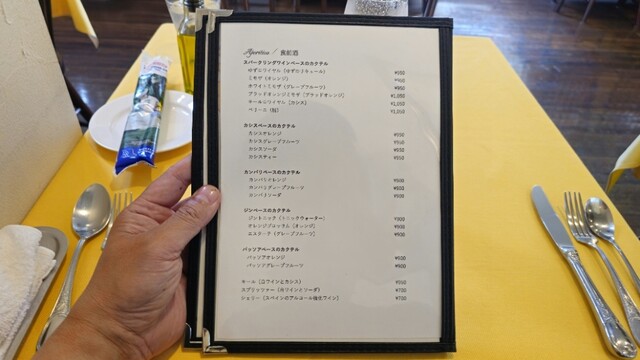 Aperitivo / 食前酒
スパークリングワインベースのカクテル
ゆずロワイヤル（ゆずリキュール）
ミモザ（オレンジ） ¥950
ホワイトミモザ（グレープフルーツ） ¥950
ブラッドオレンジミモザ（ブラッドオレンジ） ¥1,050
キールロワイヤル（カシス） ¥1,050
ベリーニ（桃） ¥1,050
カシスベースのカクテル
カシスオレンジ
カシスグレープフルーツ
カシスソーダ
カシスティー
カンパリベースのカクテル
カンパリオレンジ
カンパリグレープフルーツ
カンパリソーダ
ジンベースのカクテル
ジントニック（トニックウォーター） ¥900
オレンジブロッサム（オレンジ） ¥900
（グレープフルーツ） ¥900
パッソアベースのカクテル
パッソアオレンジ
パッソアグレープフルーツ
キール（白ワインとカシス）
スプリッツァー（白ワインとソーダ） ¥700
シェリー（スペインのアルコール強化ワイン） ¥700